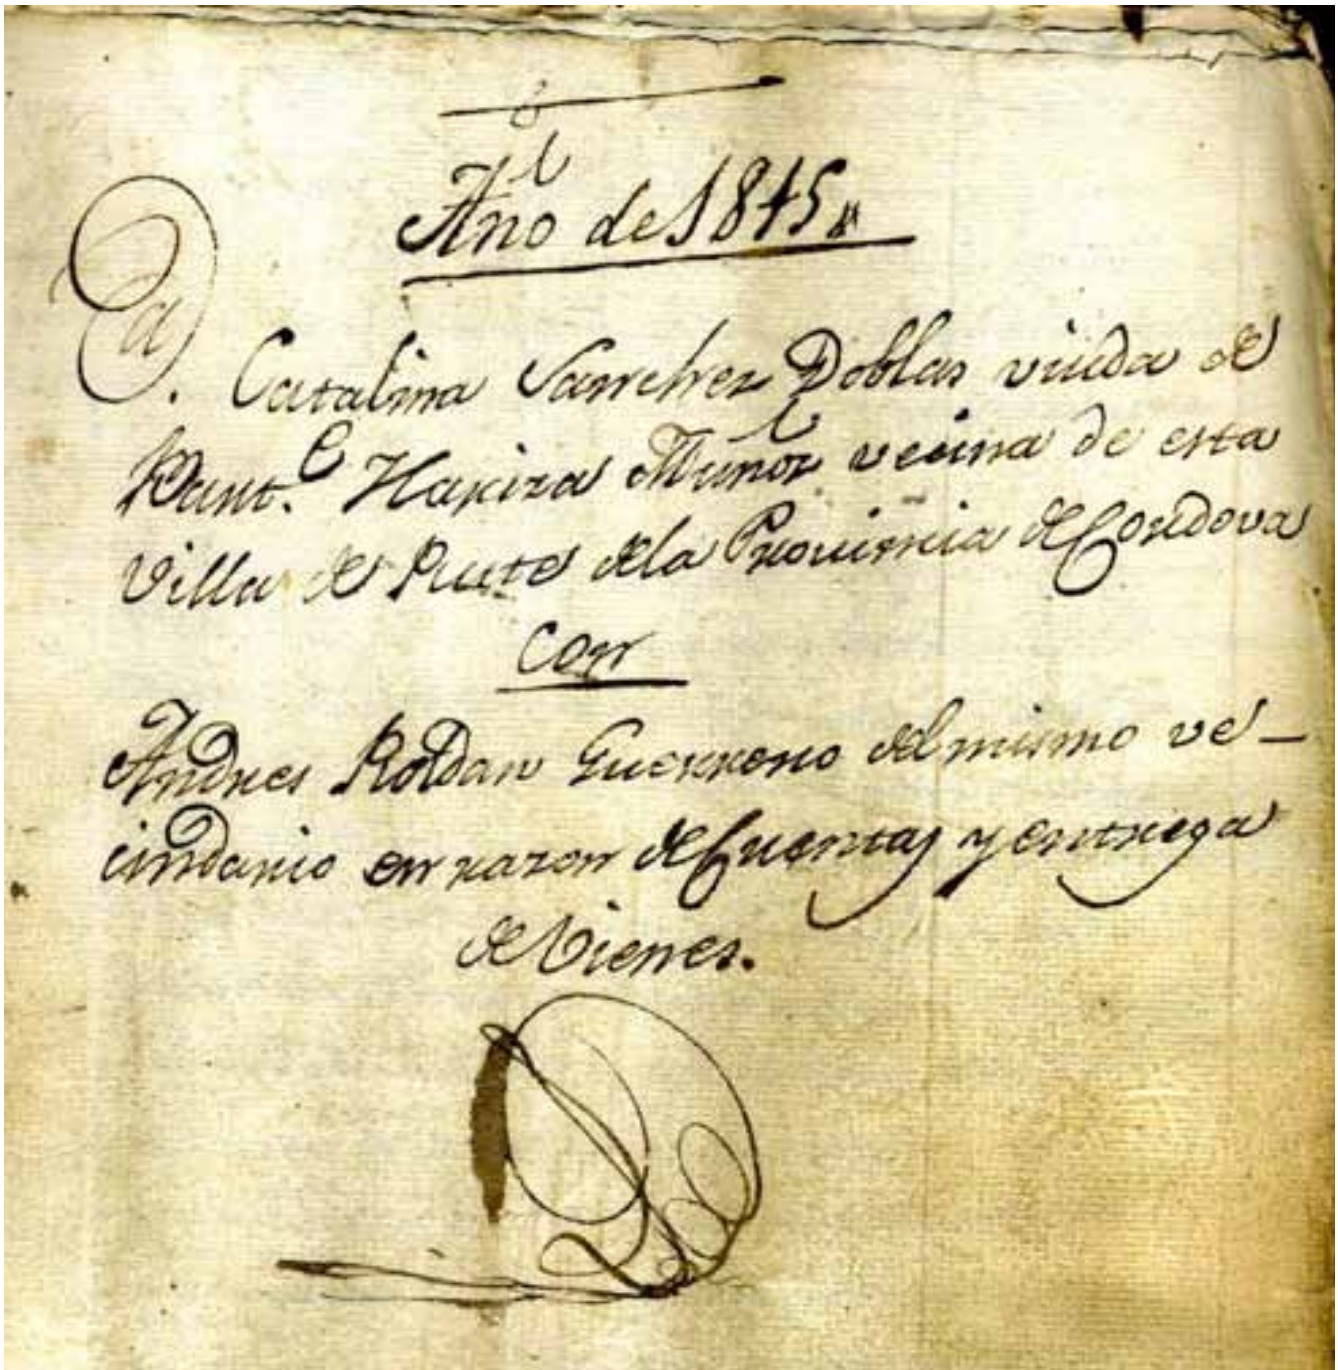 Año de 1845
Da. Catalina Sanchez Doblas viuda de
Muñoz vecina de esta
Villa de Rute de la Provincia de Cordova
Con
Andres Roldan Guerrero del mismo ve-
cindario en razon de Cuentas y entrega
de bienes.